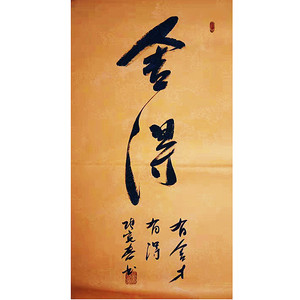 舍得
有舍才
有得